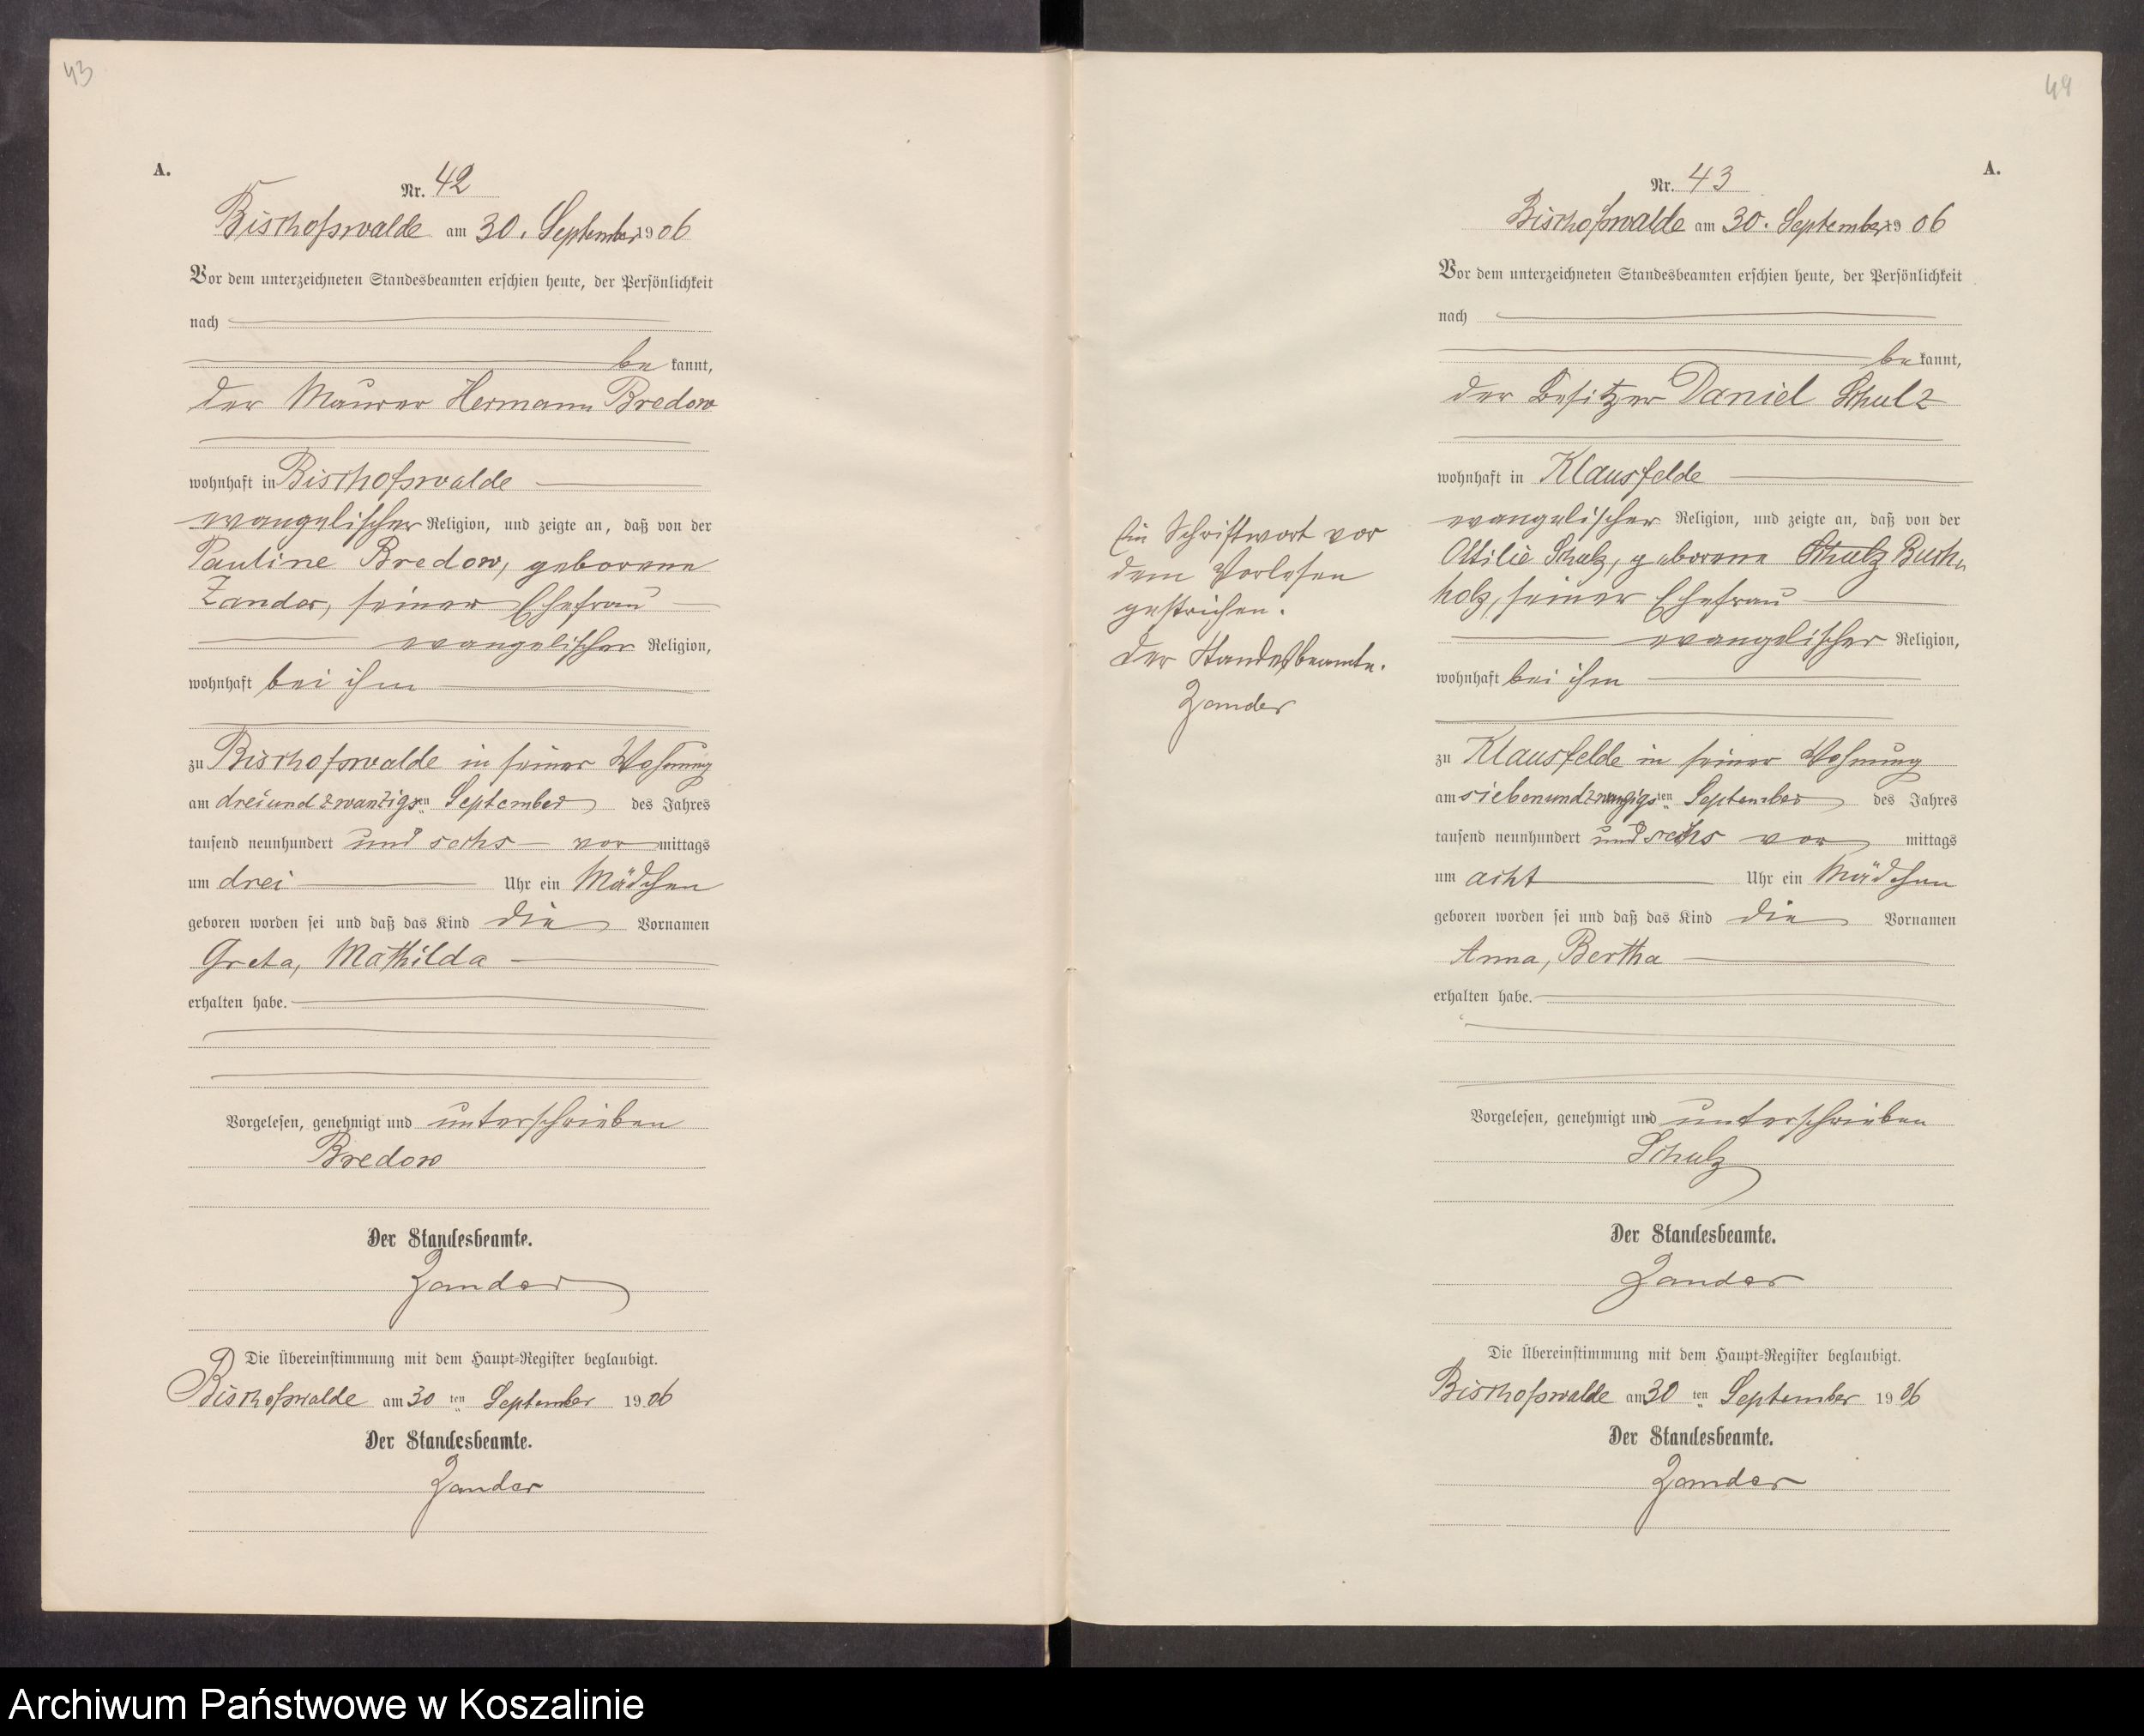 43
A.
Nr. 42
Bischofswalde am 30. September 1906
Vor dem unterzeichneten Standesbeamten erschien heute, der Persönlichkeit
nach
be kannt,
der Maurer Hermann Bredow
wohnhaft in Bischofswalde
evangelischer Religion, und zeigte an, daß von der
Pauline Bredow, geborene
Zander, seiner Ehefrau
evangelischer Religion,
wohnhaft bei ihm
zu Bischofswalde in seiner Wohnung
am dreiundzwanzigsten September des Jahres
tausend neunhundert und sechs vor mittags
um drei Uhr ein Mädchen
geboren worden sei und daß das Kind die Vornamen
Greta, Mathilda
erhalten habe.
Vorgelesen, genehmigt und unterschrieben
Bredow
Der Standesbeamte.
Zander
Die Übereinstimmung mit dem Haupt-Register beglaubigt.
Bischofswalde am 30 ten September 1906
Der Standesbeamte.
Zander
44
A.
Nr. 43
Bischofswalde am 30. September 1906
Vor dem unterzeichneten Standesbeamten erschien heute, der Persönlichkeit
nach
be kannt,
der Besitzer Daniel Schulz
wohnhaft in Klausfelde
evangelischer Religion, und zeigte an, daß von der
Ottilie Schulz, geborene Schulz Buch-
holz, seiner Ehefrau
evangelischer Religion,
wohnhaft bei ihm
zu Klausfelde in seiner Wohnung
am siebenundzwanzigsten September des Jahres
tausend neunhundert und sechs vor mittags
um acht Uhr ein Mädchen
geboren worden sei und daß das Kind die Vornamen
Anna, Bertha
erhalten habe.
Vorgelesen, genehmigt und unterschrieben
Schulz
Der Standesbeamte.
Zander
Die Übereinstimmung mit dem Haupt-Register beglaubigt.
Bischofswalde am 30 ten September 1906
Der Standesbeamte.
Zander
Ein Schriftwort vor
dem Vorlesen
gestrichen.
Der Standesbeamte.
Zander
Archiwum Państwowe w Koszalinie